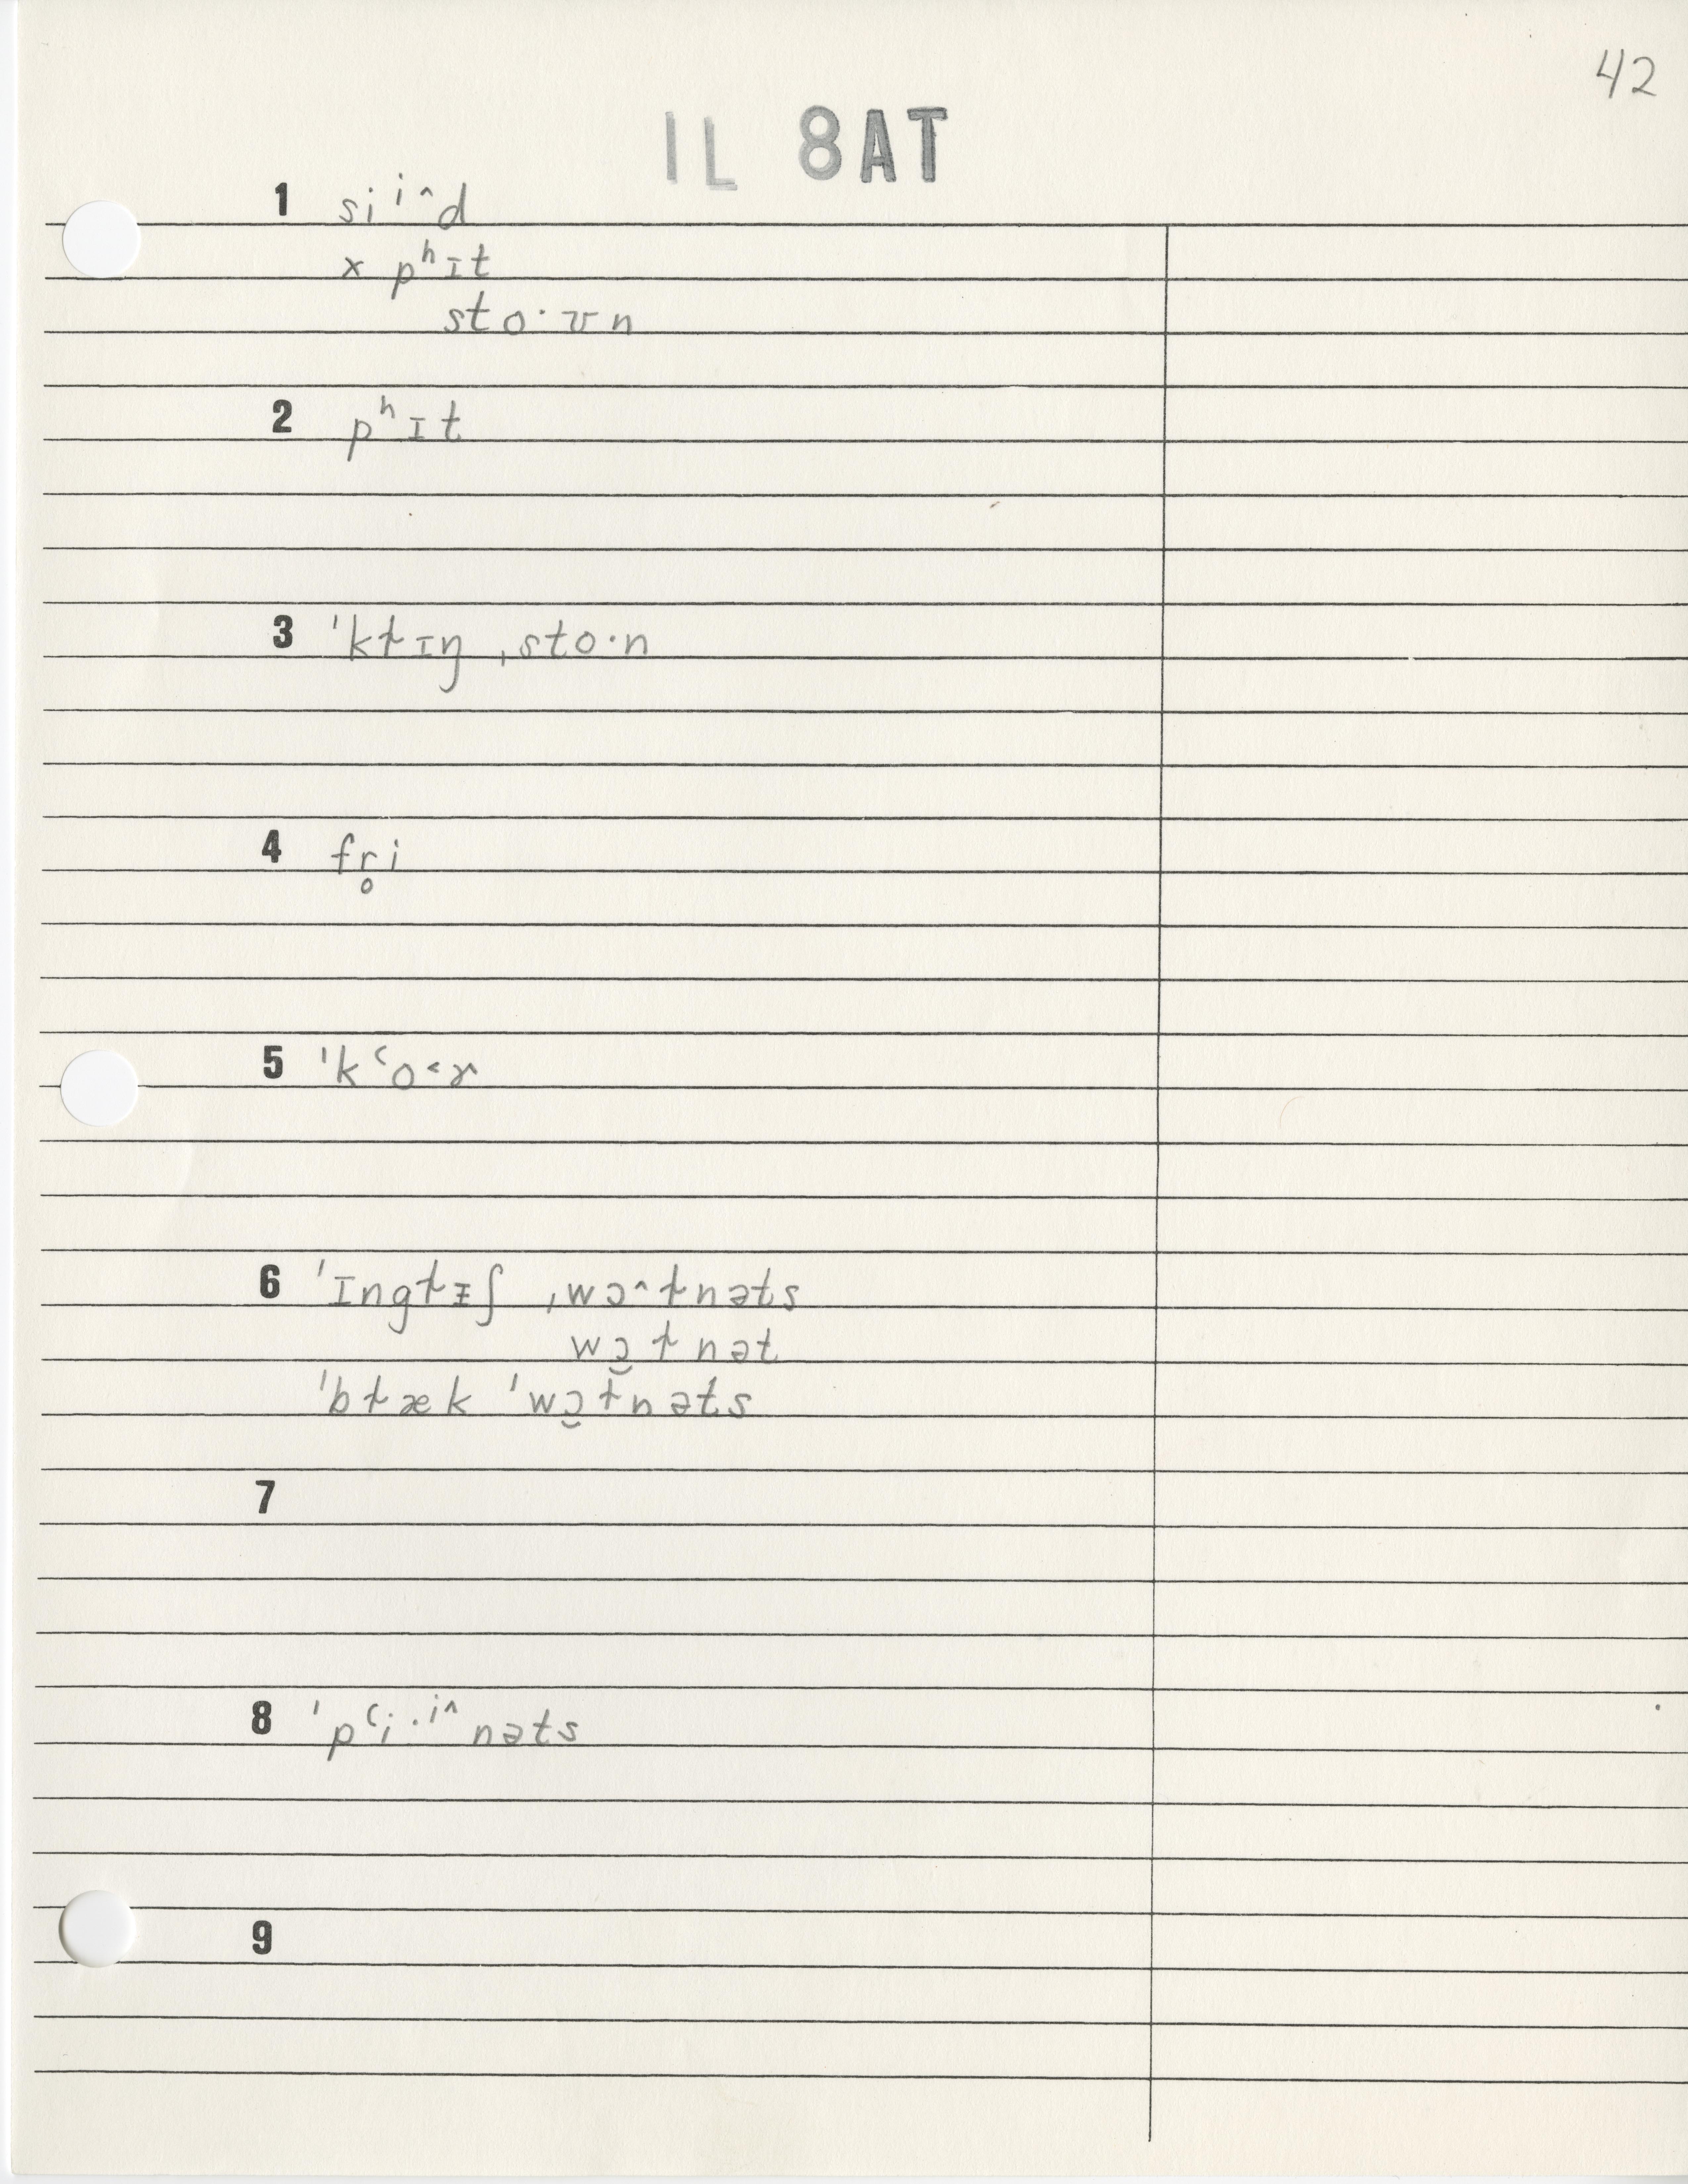 42
IL 8AT
1 siⁱ^d
x pʰɪt
sto·ʊn
2 pʰɪt
3 ˈkɫɪŋ ˌsto·n
4 fr̥i
5 ˈkʻo˂ɚ
6 ˈɪngɫᵻʃ ˌwɔ^ɫnəts
wɔ̯ɫnət
ˈbɫæk ˈwɔ̯ɫnəts
7
8 ˈpʻi·ⁱ^nəts
9